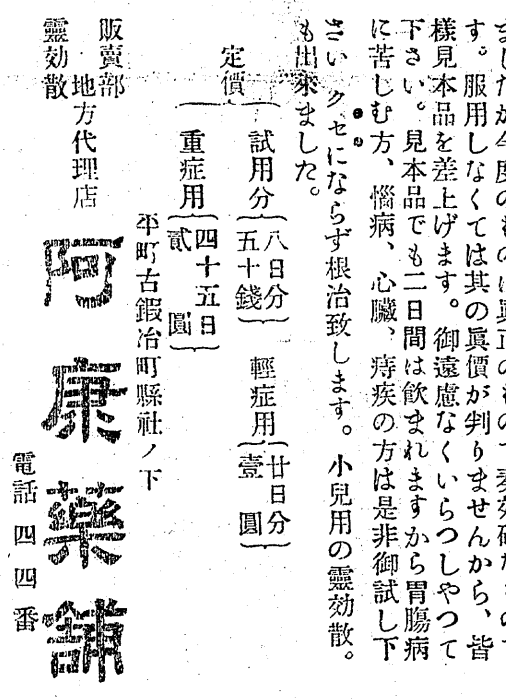 す。服用しなくては其の眞價が判りませんから、皆
樣見本品を差上げます。御遠慮なくいらつしやつて
下さい。見本品でも二日間は飮まれますから胃膓病
に苦しむ方、惱病、心臟、痔疾の方は是非御試し下
さい クセにならず根治致します。小兒用の靈効散。
も出來ました。
定價
試用分 八日分 五十錢
輕症用 廿日分 壹圓
重症用 四十五日 貳圓
平町古鍛冶町縣社ノ下
販賣部
地方代理店
靈効散
阿康藥舖
電話四四番